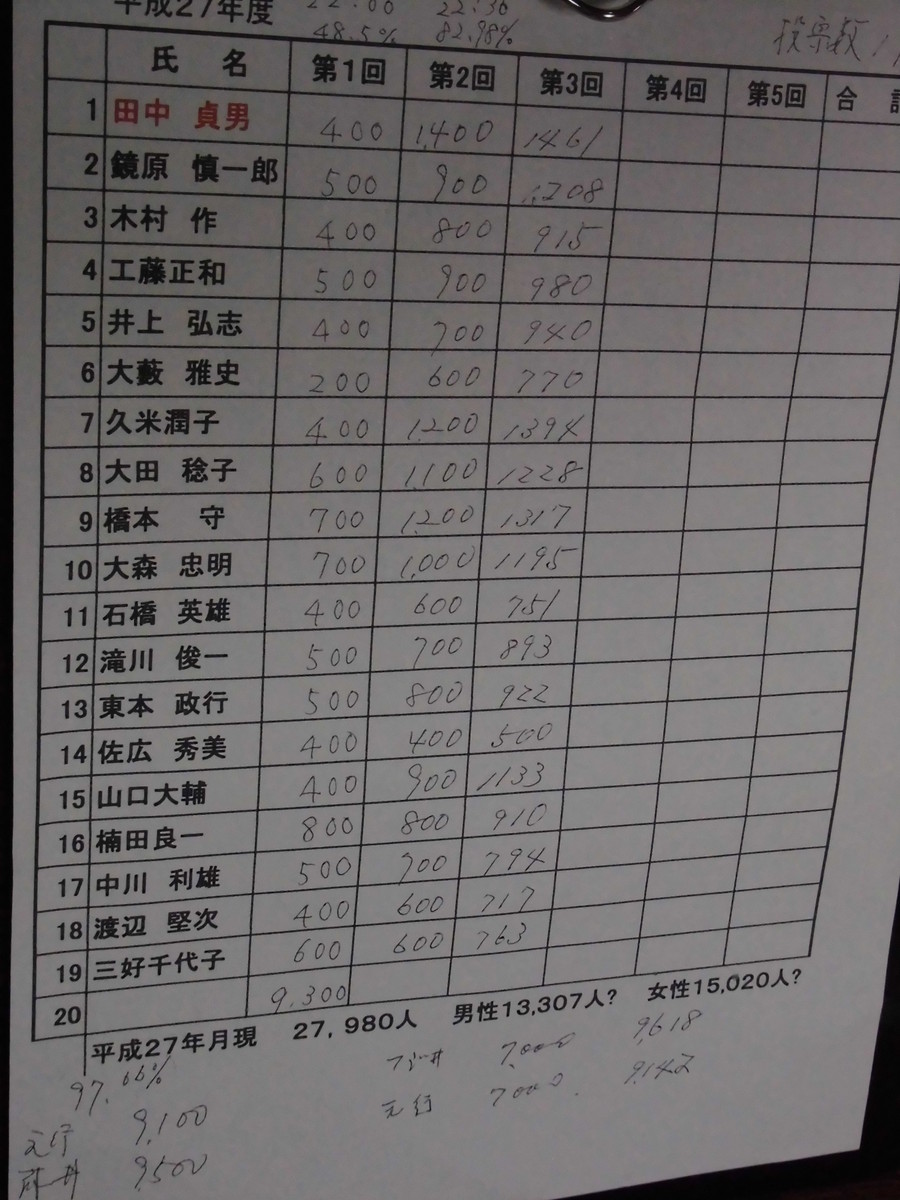 平成27年度 22:00 22:30
48.5% 82.98% 投票数
氏 名 第1回 第2回 第3回 第4回 第5回 合
1 田中 貞男 400 1,400 1461
2 鏡原 慎一郎 500 900 1,208
3 木村 作 400 800 915
4 工藤正和 500 900 980
5 井上 弘志 400 700 940
6 大藪 雅史 200 600 770
7 久米潤子 400 1,200 1394
8 大田 稔子 600 1,100 1228
9 橋本 守 700 1,200 1317
10 大森 忠明 700 1,000 1195
11 石橋 英雄 400 600 751
12 滝川 俊一 500 700 893
13 東本 政行 500 800 922
14 佐広 秀美 400 400 500
15 山口大輔 400 900 1133
16 楠田良一 800 800 910
17 中川 利雄 500 700 794
18 渡辺 堅次 400 600 717
19 三好千代子 600 600 763
20 9,300
平成27年月現 27,980人 男性13,307人? 女性15,020人?
97.66% 7,000 9,618
9,100 元行 7000 9,142
元行
9,500